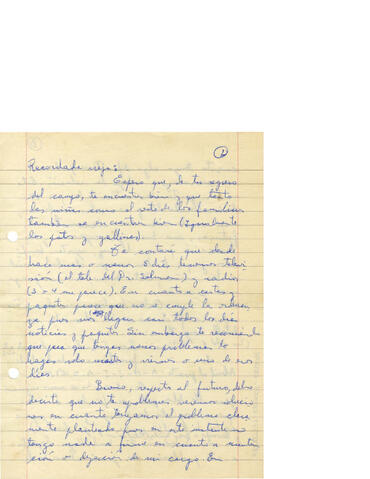 2
Recordada vieja:
Espero que, de tu regreso
del campo, te encuentres bien y que tanto
las niñas como el resto de los familiares
también se encuentren bien (Igualmente
los patos y gallinas).
Te contaré que desde
hace más o menos 5 días tenemos televi-
sión (el tele del Dr. ) y radios
(3 o 4 me parece). En cuanto a cartas y
paquetes parece que no se cumple la
ya pues nos llegan casi todos los días
noticias y paquetes. Sin embargo te recomiendo
que para que tengas menos problemas lo
hagas solo martes y viernes o uno de esos
días.
Bueno, respecto al futuro, debo
decirte que no te apobleques, veremos
en cuanto tengamos el problema clara
mente planteado pues en este instante no
tengo nada a firme en cuanto a
ción o dejación de mi cargo. En